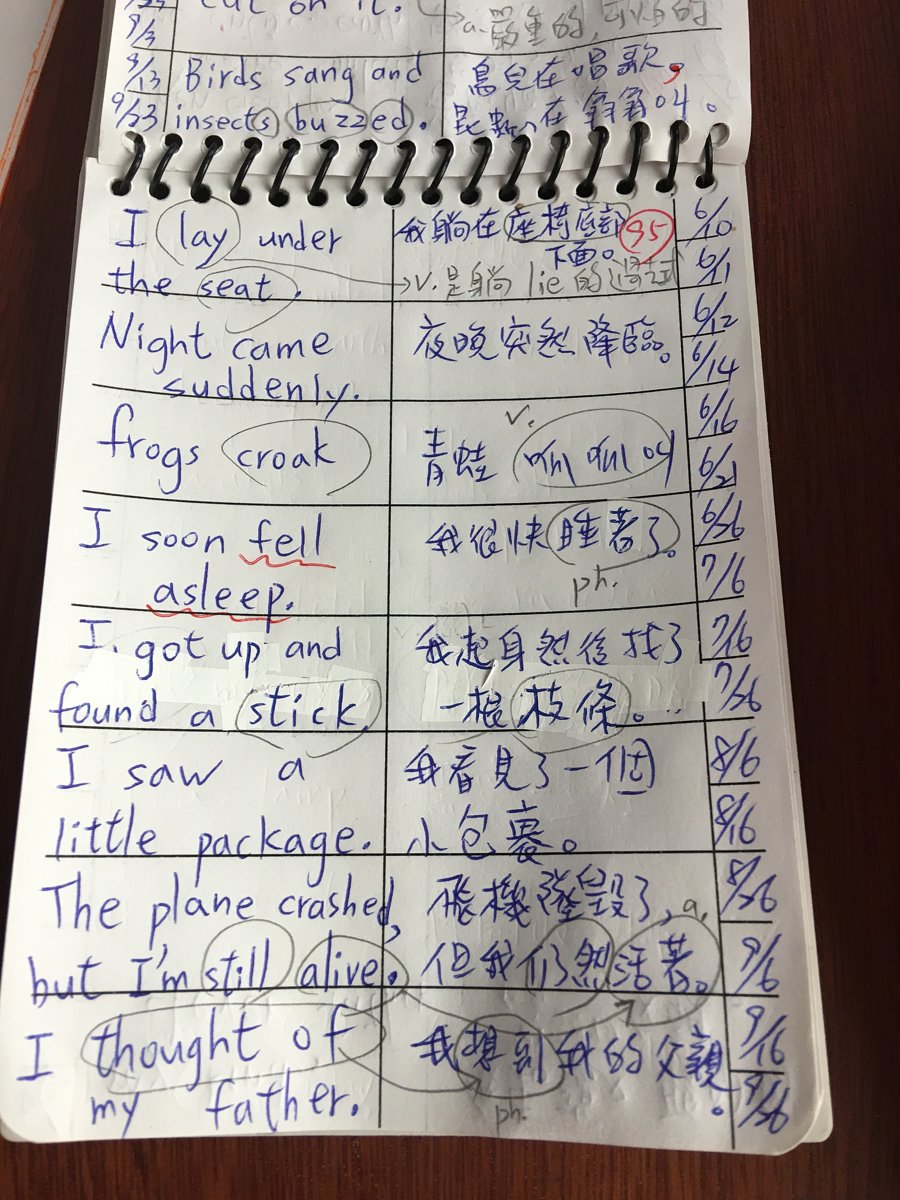 eat on it.
a. 最里的, 可以的
9/3
9/13 Birds sang and 鳥兒在唱歌,
9/23 insects buzzed. 昆蟲在
I lay under 我躺在座椅底部 95 6/10
下面。
the seat. v. 是躺 lie 的過式 6/11
Night came 夜晚突然降臨。 6/12
suddenly. 6/14
v. 6/16
frogs croak 青蛙 呱呱叫 6/21
I soon fell 我很快睡著了。 6/26
asleep. ph. 7/6
I got up and 我起身然後找了 7/16
found a stick 一根枝條。 7/26
I saw a 我看見了一個 8/6
little package. 小包裹。 8/16
The plane crashed, 飛機墜毀了, a. 8/26
but I'm still alive. 但我仍然活著。 9/6
I thought of 我想到我的父親 9/16
my father. ph. 。 9/26